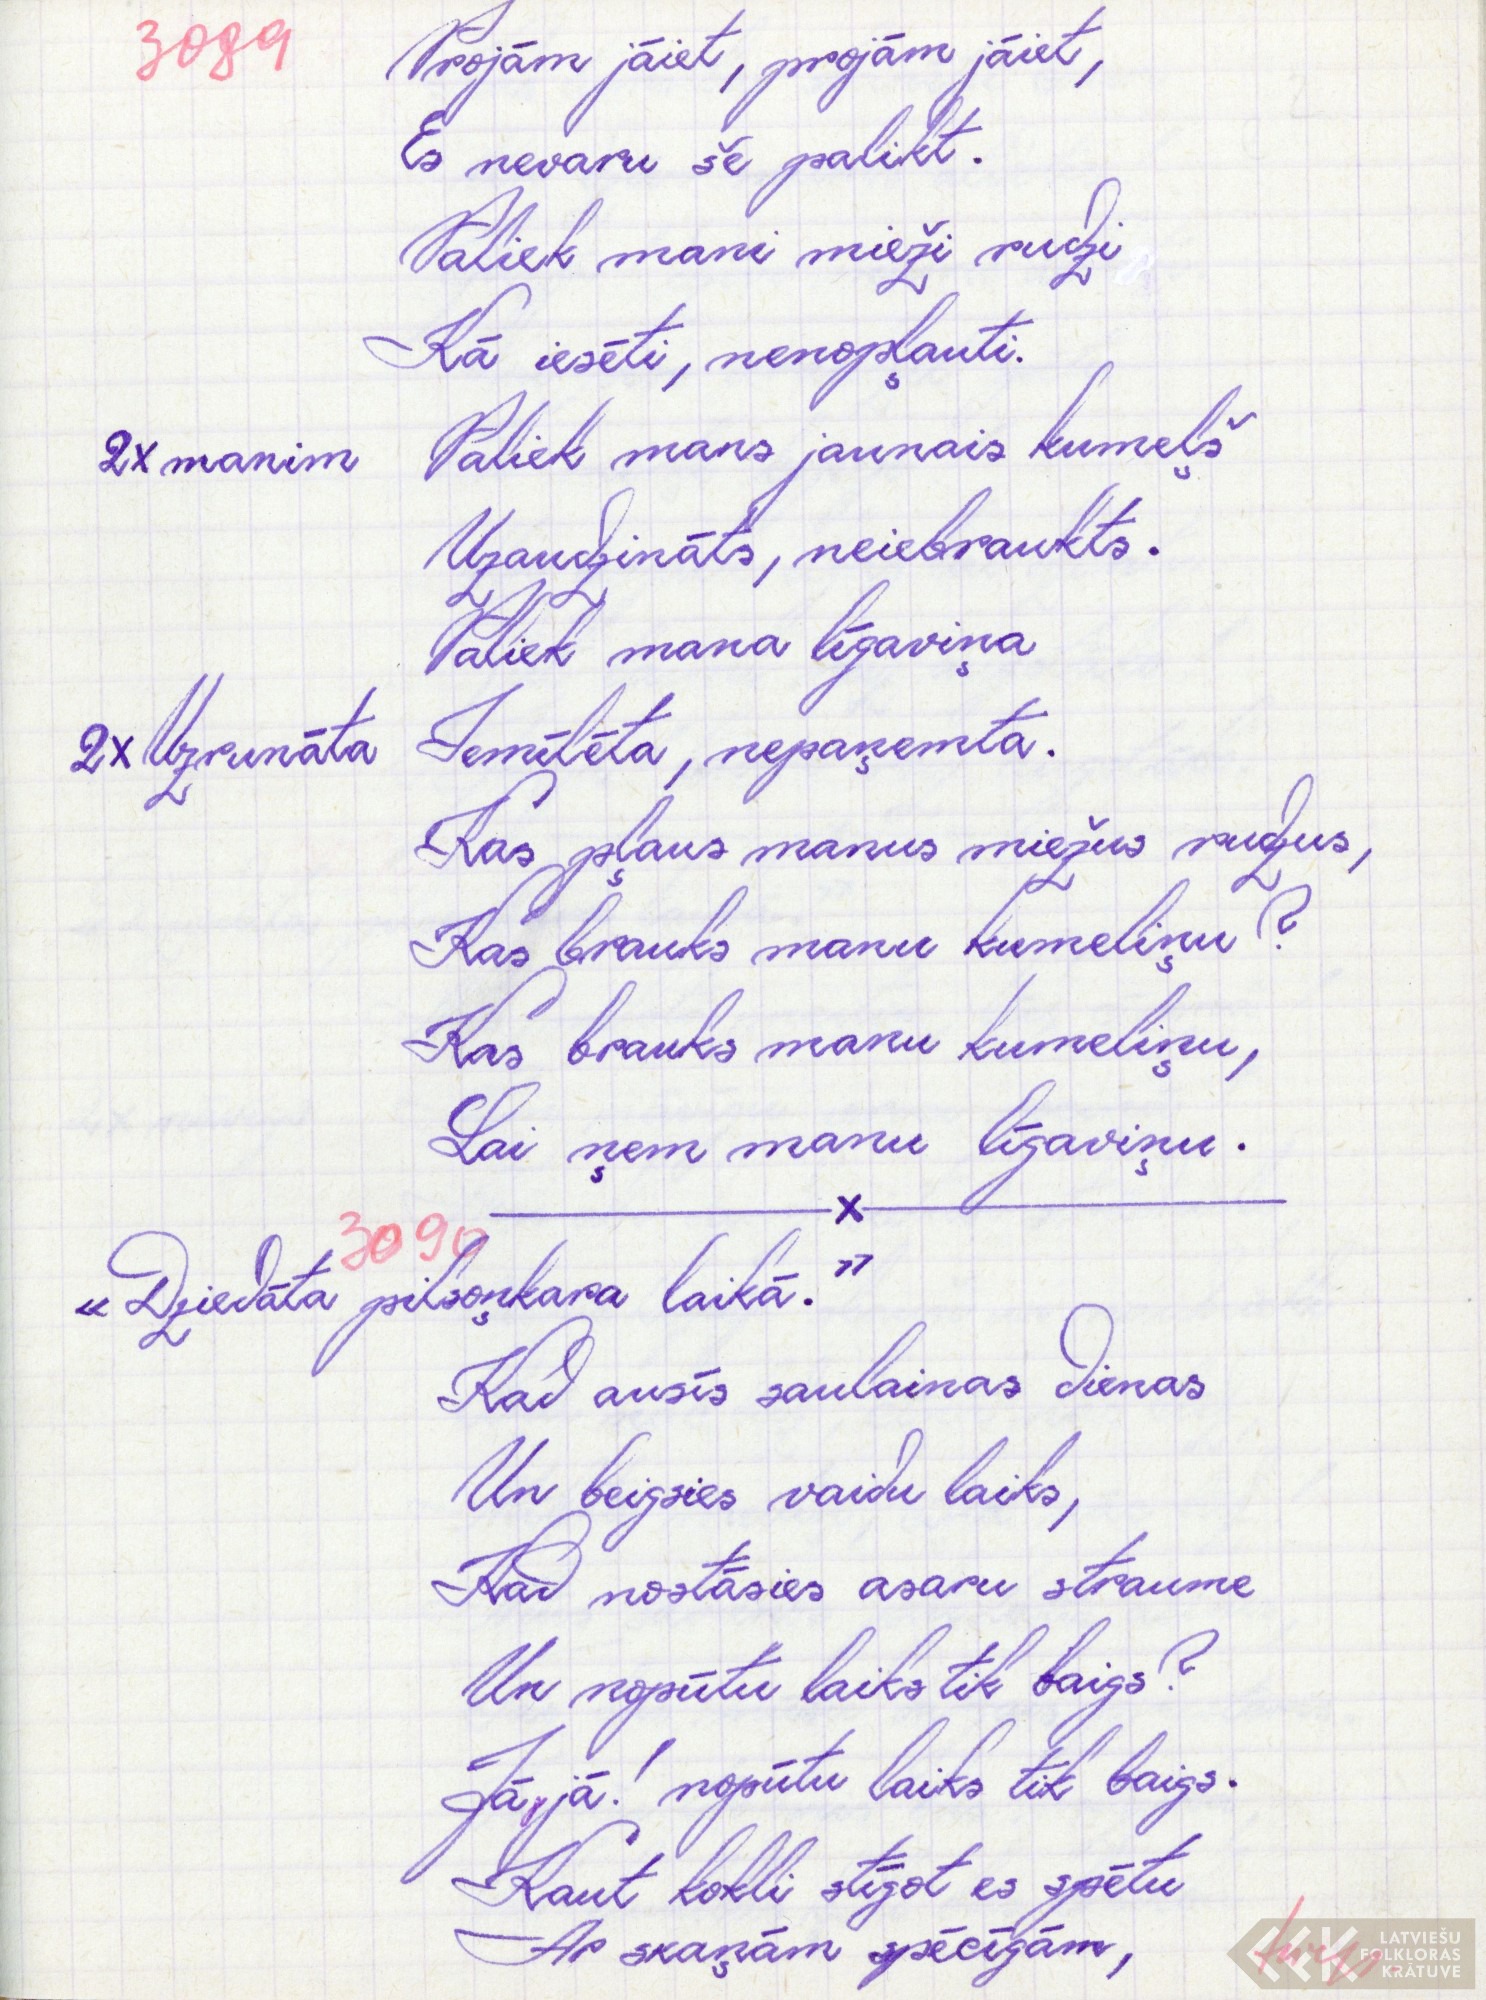 3089
Projām jāiet, projām jāiet,
Es nevaru še palikt.
Paliek mani mieži rudzi
Kā iesēti, nenopļauti.
2x manim Paliek mans jaunais kumeļš
Uzaudzināts, neiebraukts.
Paliek mana līgaviņa
2x Uzrunāta Iemīlēta, nepaņemta.
Kas pļaus manus miežus rudzus,
Kas brauks manu kumeliņu?
Kas brauks manu kumeliņu,
Lai ņem manu līgaviņu.
x
3090
„Dziedāta pilsoņkara laikā."
Kad ausīs saulainas dienas
Un beigsies vaidu laiks,
Kad nostāsies asaru straume
Un nopūtu laiks tik baigs?
Jā, jā! nopūtu laiks tik baigs.
Kaut kokli stīgot es spētu
Ar skaņām spēcīgām,
LATVIEŠU
FOLKLORAS
KRĀTUVE